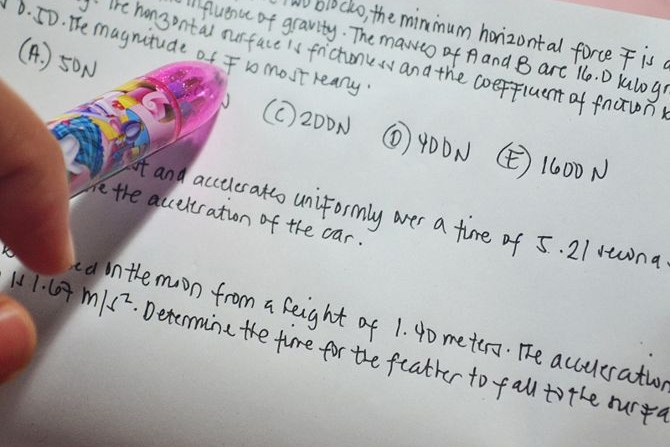 influence of gravity. The masses of A and B are 16.0 kilogr
two blocks, the minimum horizontal force F is a
D.ID. The horizontal surface is frictionless and the coefficient of friction
The magnitude of F is most nearly.
(A.) 50N
(C) 200N (D) 400N (E) 1600 N
and accelerates uniformly over a time of 5.21 second
the acceleration of the car.
ed on the moon from a height of 1.40 meters. The acceleration
is 1.67 m/s². Determine the time for the feather to fall to the surfa